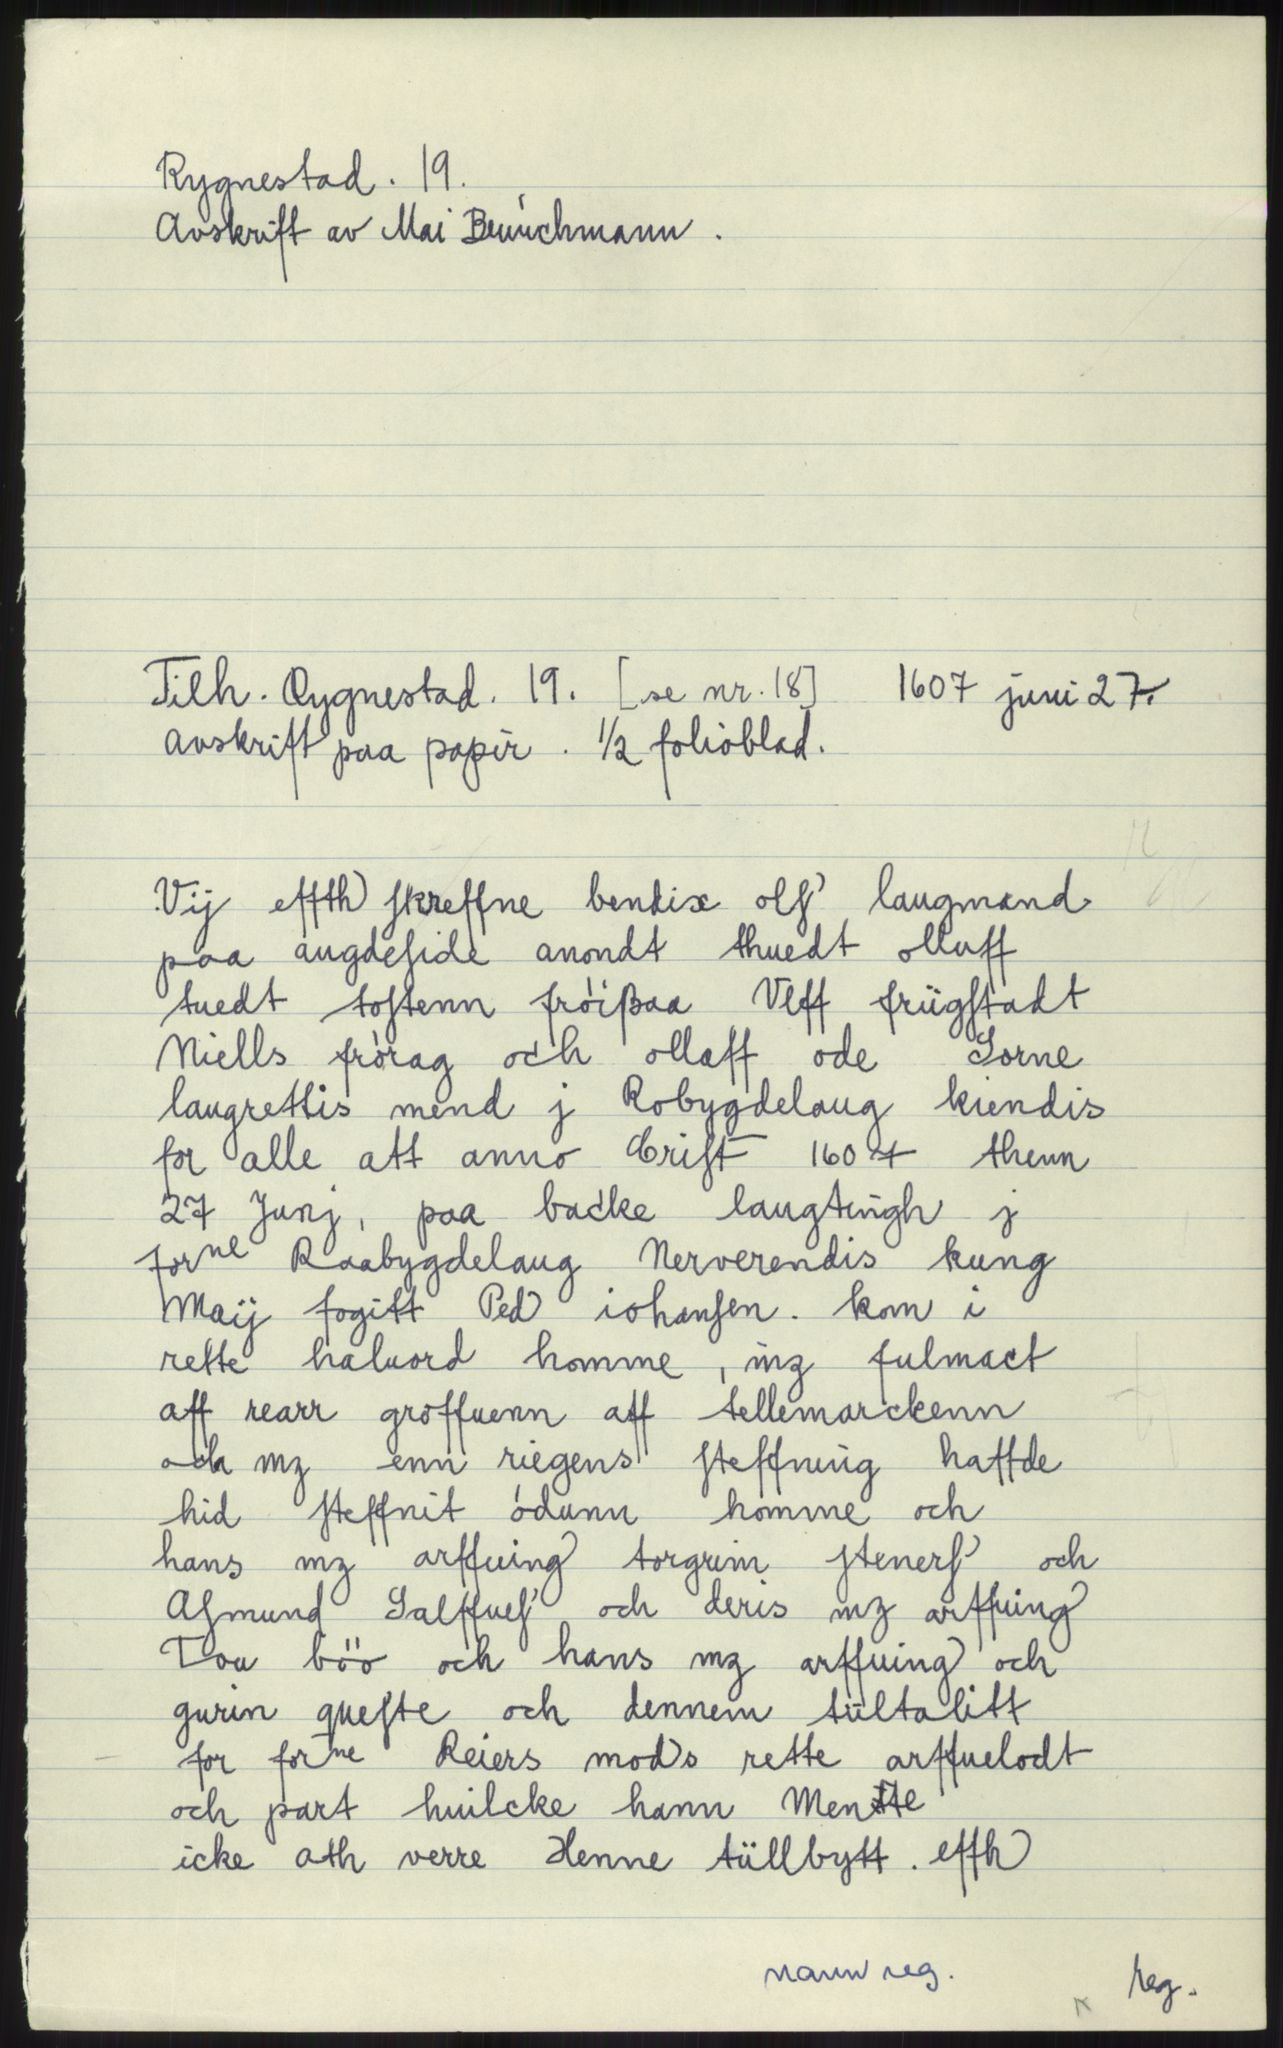 Rygnestad. 19.
Avskrift av Mai Beinichmann.
Tilh. Rygnestad. 19. [se nr. 18] 1607 juni 27.
avskrift paa papir. 1/2 folioblad.
Vij effth skreffne bendix olss' laugmand
paa augdeside anondt thuedt olluff
tuedt tostenn fröißaa Vlff frügstadt
Niells frörag och ollaff ode Sorne
laugrettis mend j Robygdelaug kiendis
for alle att anno Crist 1607 thenn
27 Junj, paa backe laugtingh j
forne Raabygdelaug Nerverendis kung
Maij fogitt Ped iohansen. kom i
rette haluord homme, mz fulmact
aff rearr gröffuenn aff tellemarckenn
och mz enn riegens steffning haffde
hid steffnit ódunn homme och
hans mz arffuing torgrim steners' och
Asmund Salffues' och deris mz arffuing
Tou böo och hans mz arffuing och
gurin queste och dennem tültalitt
for forne Reiers mods rette arffuelodt
och part huilcke hann Mente
icke ath verre Henne tüllbytt. effh
navnreg. reg.